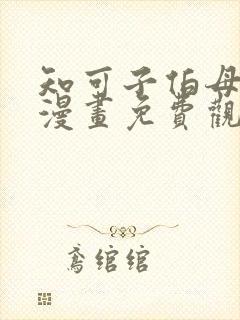 知可子伯母
漫畫免費觀
鸢绾绾